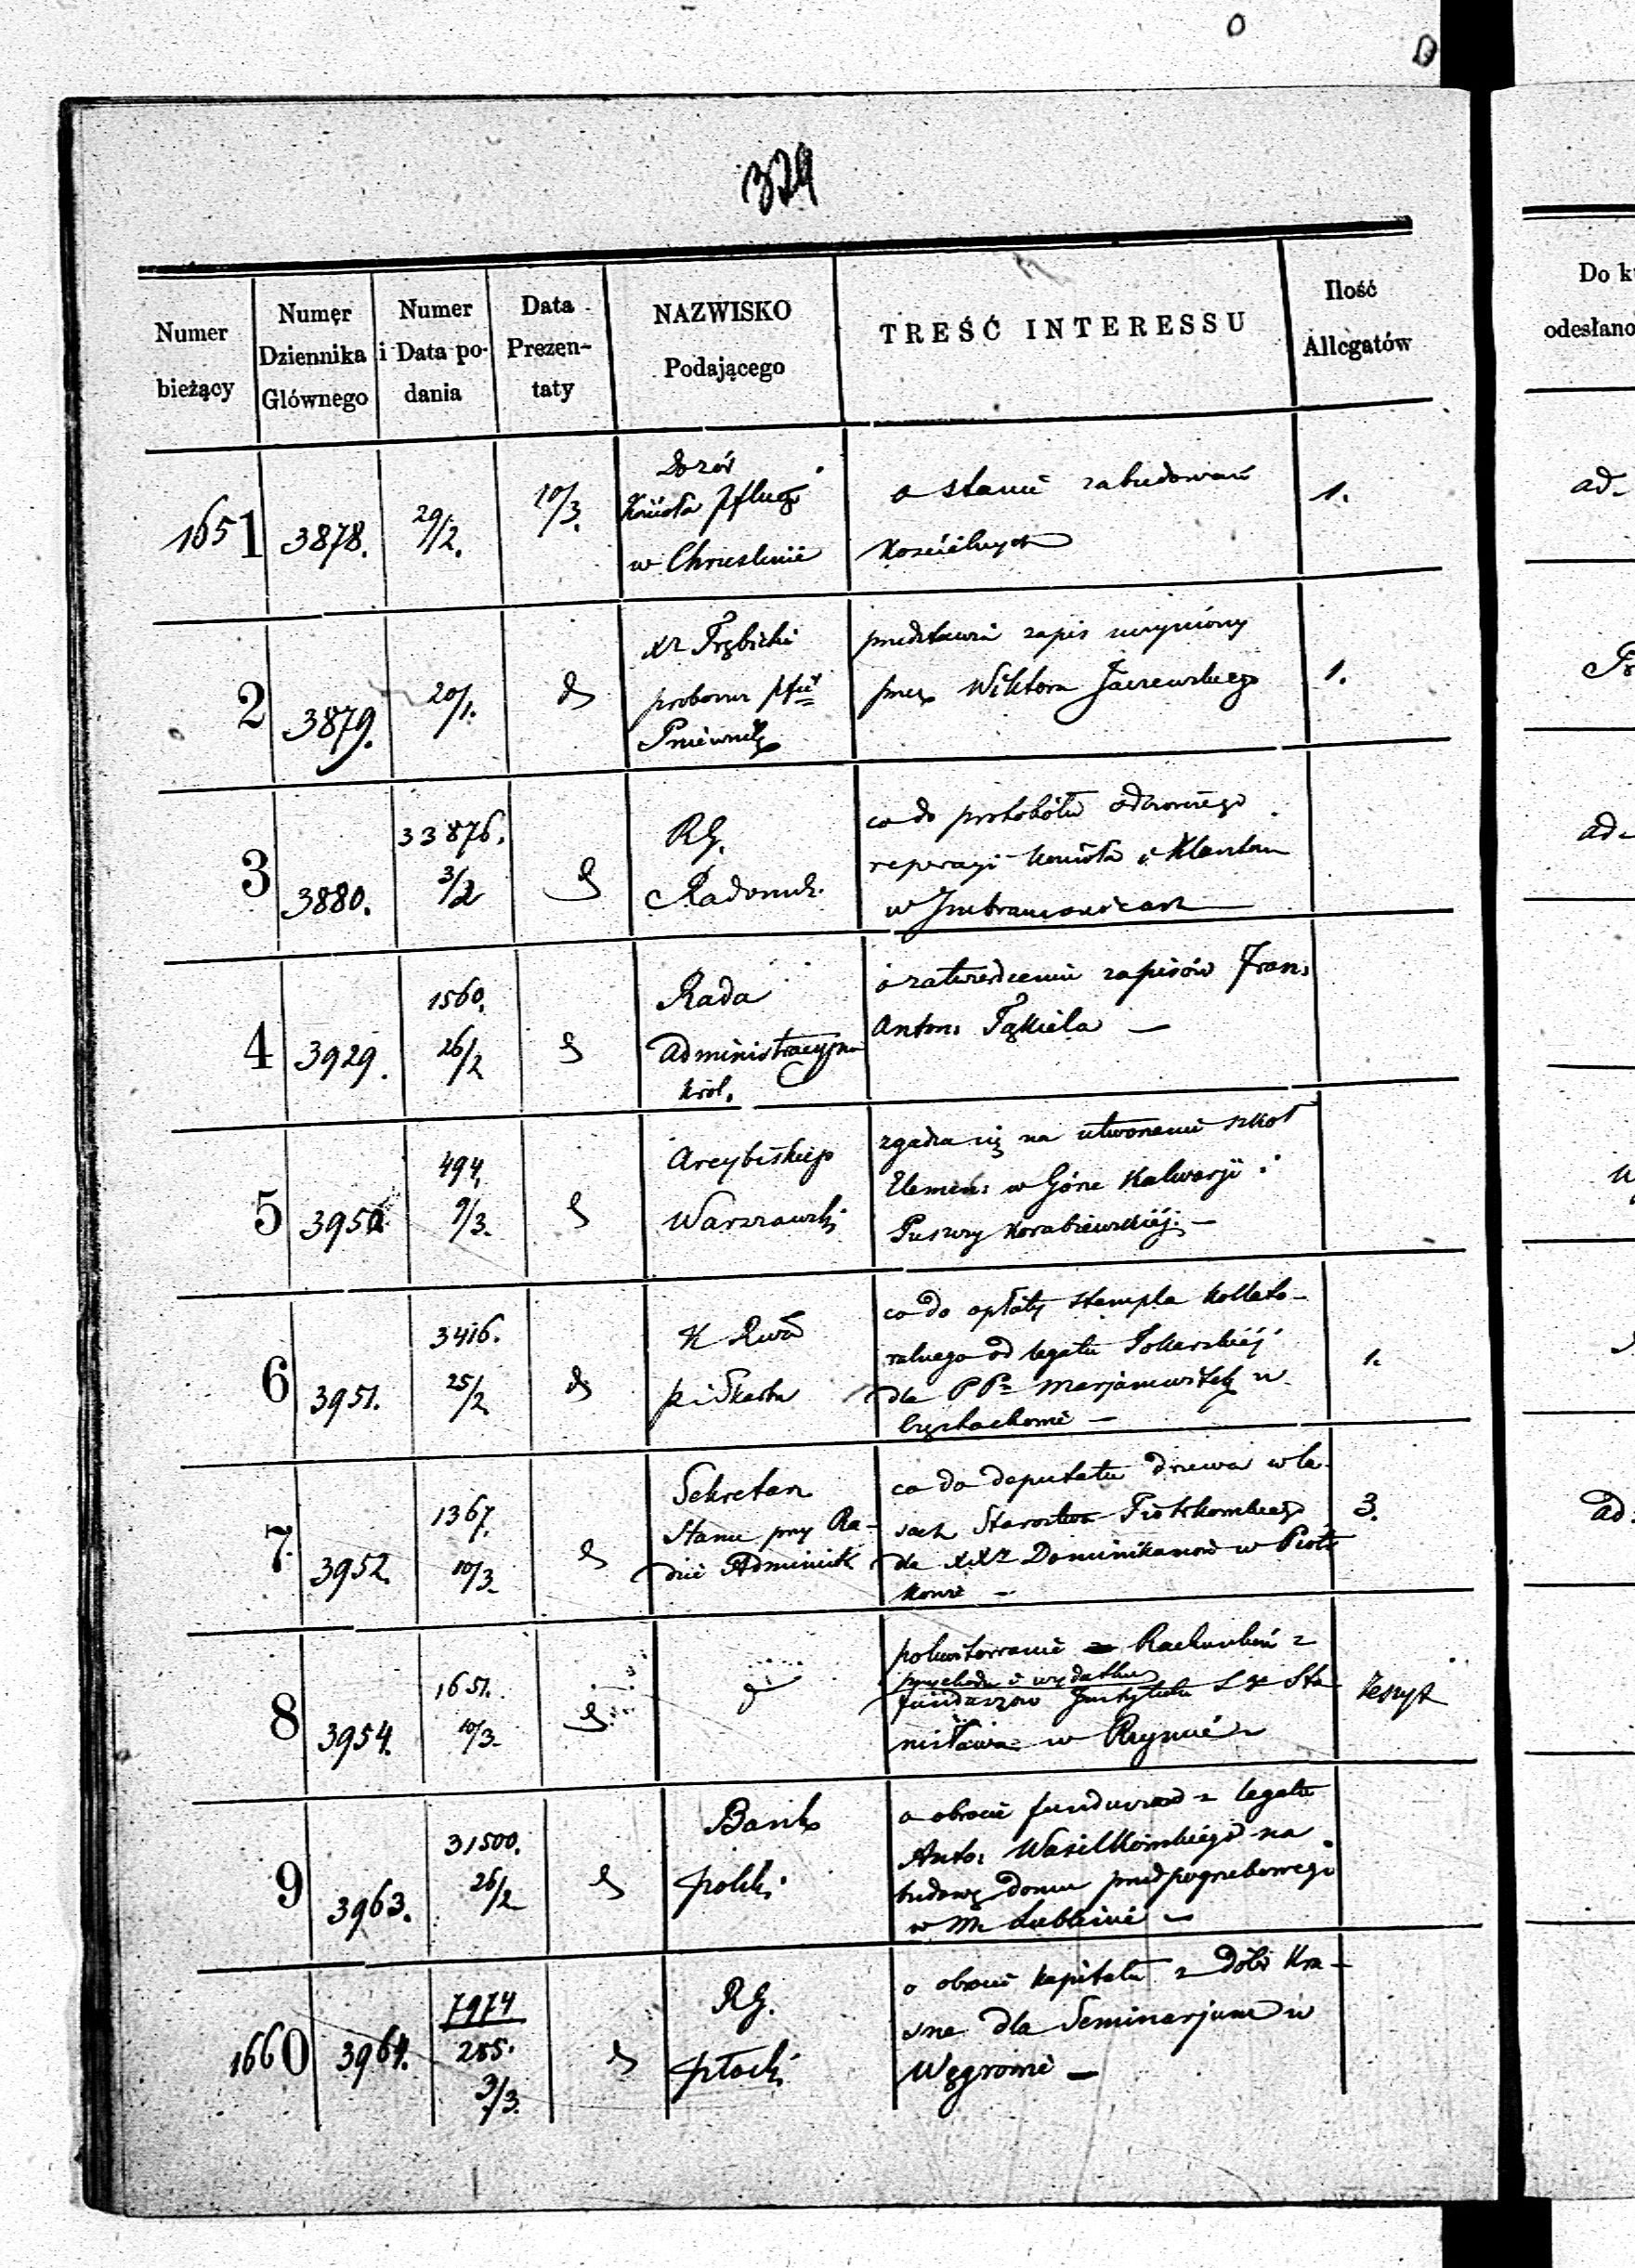 324
Numer bieżący
Numer Dziennika Głównego
Numer i Data podania
Data Prezentaty
NAZWISKO Podającego
TREŚĆ INTERESSU
Ilość Allegatów
Do k
odesłano
1651 3878. 29/2. 10/3.
Dozór
w Chruslinie
o stanie zabudowań
kościelnych
1.
ad.
2 3879. 20/1.
Xz Trębicki
Pniewnik
przedstawia zapis uczyniony
przez Wiktora Jaczewskiego
1.
3 3880. 33876. 3/2
RG.
Radomsk.
co do protokółu odbiorczego
reperacyi kościoła i Klasztoru
w Imbramowicach
ad.
4 3929. 1560. 26/2
Rada
Administracyjna
Król.
o zatwierdzeniu zapisów Fran:
Anton: Tąkiela —
5 3950. 494. 9/3.
Arcybiskup
Warszawski
zgadza się na utworzenie szkoł
Elemen: w Górze Kalwaryi i
Puszczy Korabiewskiéj. —
6 3951. 3416. 25/2
K Rząd
P i Skarbu
co do opłaty stempla kollate-
ralnego od legatu
dla PP Marjawitek w
Częstochowie —
1.
7 3952. 1367. 10/3.
Sekretarz
Stanu przy Ra-
dzie Administr
co do deputatu drzewa w la-
sach Starostwa Piotrkowskiego
dla XXz Dominikanów w Piotr
kowie —
3.
ad.
8 3954. 1651. 10/3.
pokwitowanie Rachunków z
przychodu i wydatku
funduszów Instytutu Sx Sta-
nisława w Rzymie
Zeszyt
9 3963. 31500. 26/2
Bank
polski
o obrocie funduszów z legatu
Anto: Wasilkowskiego na
budowę domu przedpogrzebowego
w m Lublinie —
1660 3964. 7974
255.
3/3.
RG.
płocki
o obrocie kapitału z dóbr Kra-
sne dla Seminarjum w
Węgrowie —